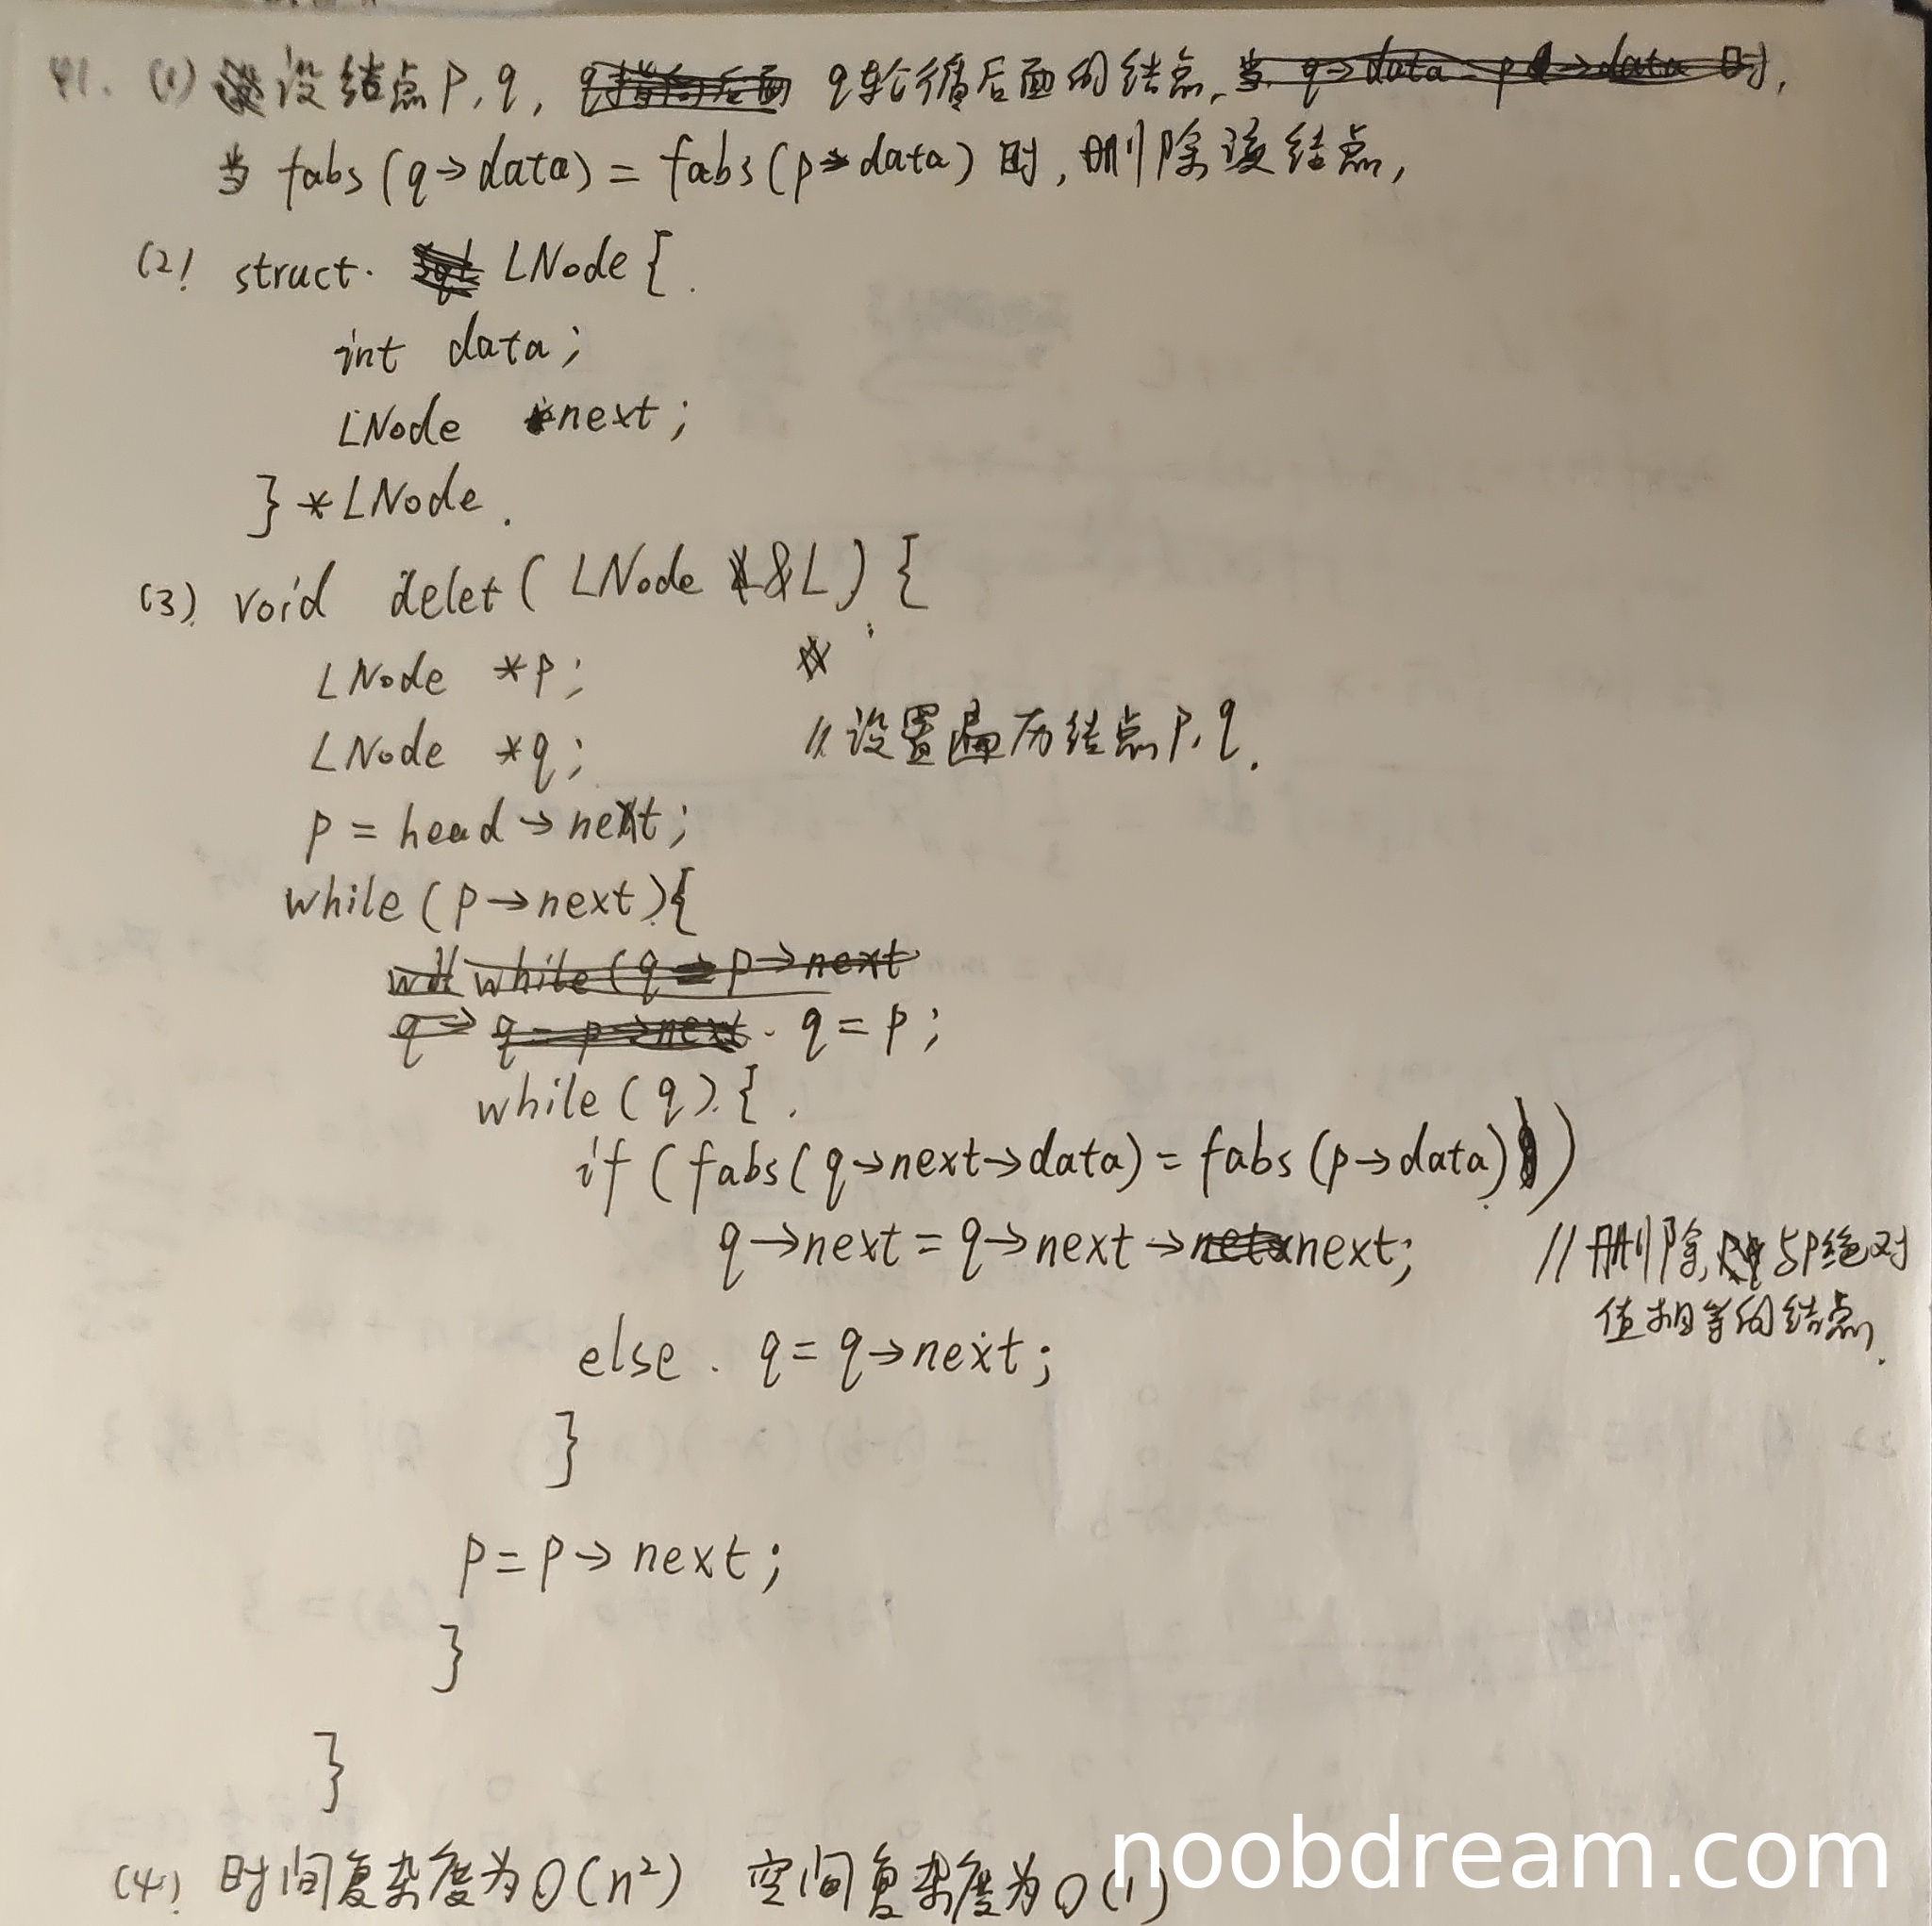 41. (1) 设结点P,q, q轮循后面的结点,
当 fabs(q→data) = fabs(p→data) 时,删除该结点,
(2) struct LNode {
int data;
LNode *next;
} *LNode.
(3) void delet( LNode *&L) {
LNode *p;
LNode *q; // 设置遍历结点P,q.
p = head→next;
while (p→next){
q = p;
while (q) {
if (fabs(q→next→data) = fabs(p→data))
q→next = q→next→next; // 删除与P绝对
值相等的结点.
else q = q→next;
}
p = p→next;
}
}
(4) 时间复杂度为O(n²) 空间复杂度为O(1)
noobdream.com